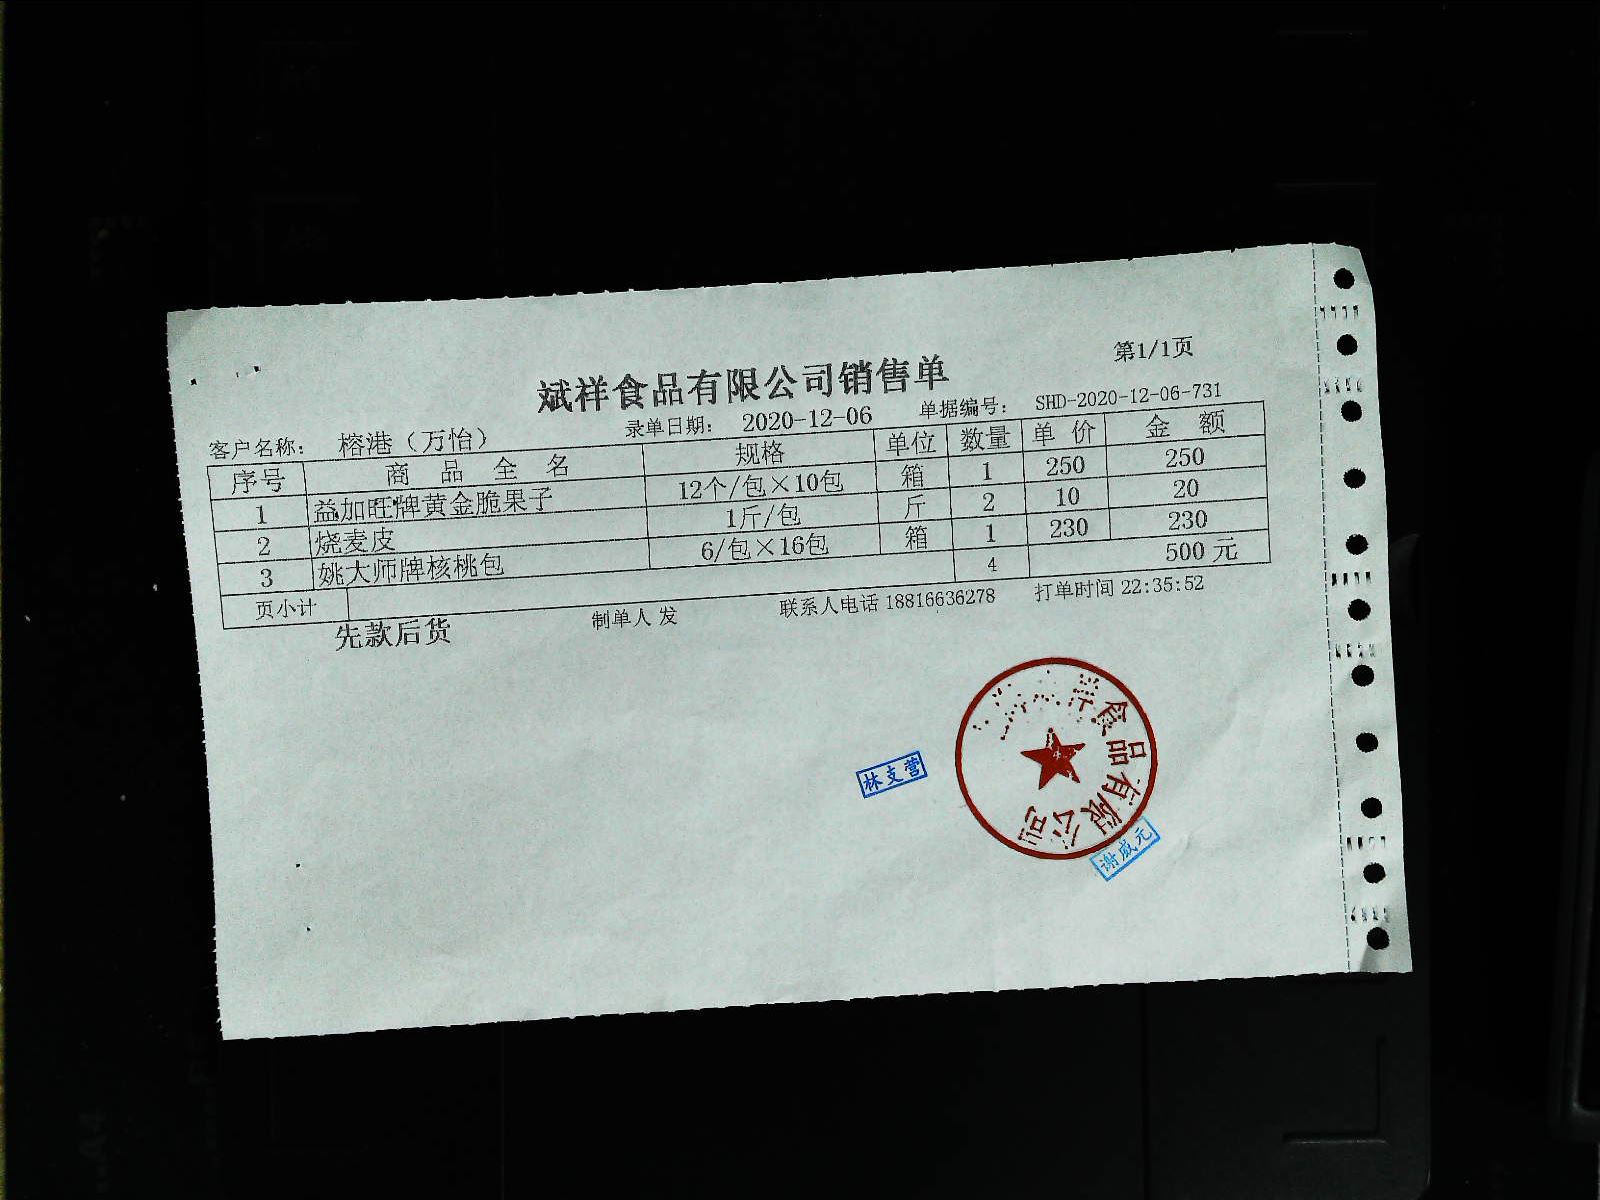 第1/1页
斌祥食品有限公司销售单
客户名称： 榕港（万怡） 录单日期： 2020-12-06 单据编号： SHD-2020-12-06-731
序号 商品全名 规格 单位 数量 单价 金额
1 益加旺牌黄金脆果子 12个/包×10包 箱 1 250 250
2 烧麦皮 1斤/包 斤 2 10 20
3 姚大师牌核桃包 6/包×16包 箱 1 230 230
页小计 4 500 元
先款后货 制单人 发 联系人电话 18816636278 打单时间 22:35:52
祥食品有限公司
林支营
谢威元